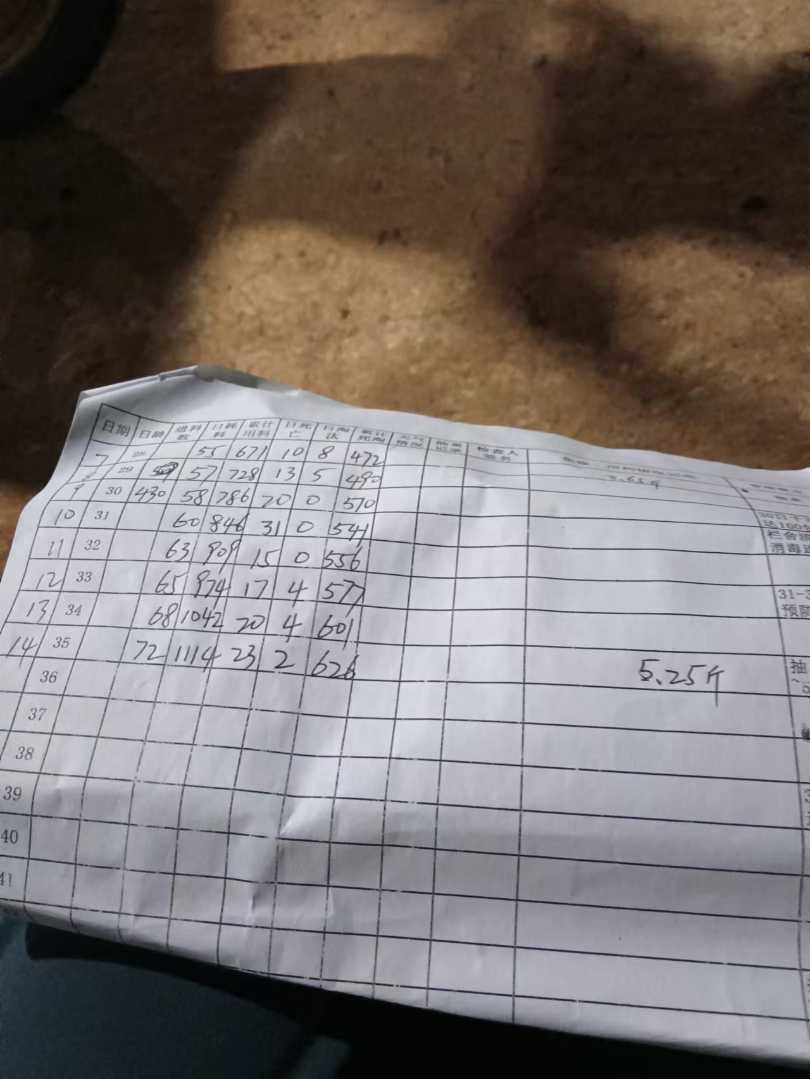 日期 日龄 进料数 日耗料 累计用料 日死亡 日淘汰 累计死淘 天气情况 检查人签名
7 28 55 671 10 8 472
29 57 728 13 5 490
9 30 430 58 786 20 0 510
10 31 60 846 31 0 541
11 32 63 909 15 0 556
12 33 65 974 17 4 577
13 34 68 1042 20 4 601
14 35 72 1114 23 2 626 5.25斤
36
37
38
39
40
41
31-3
预防
抽